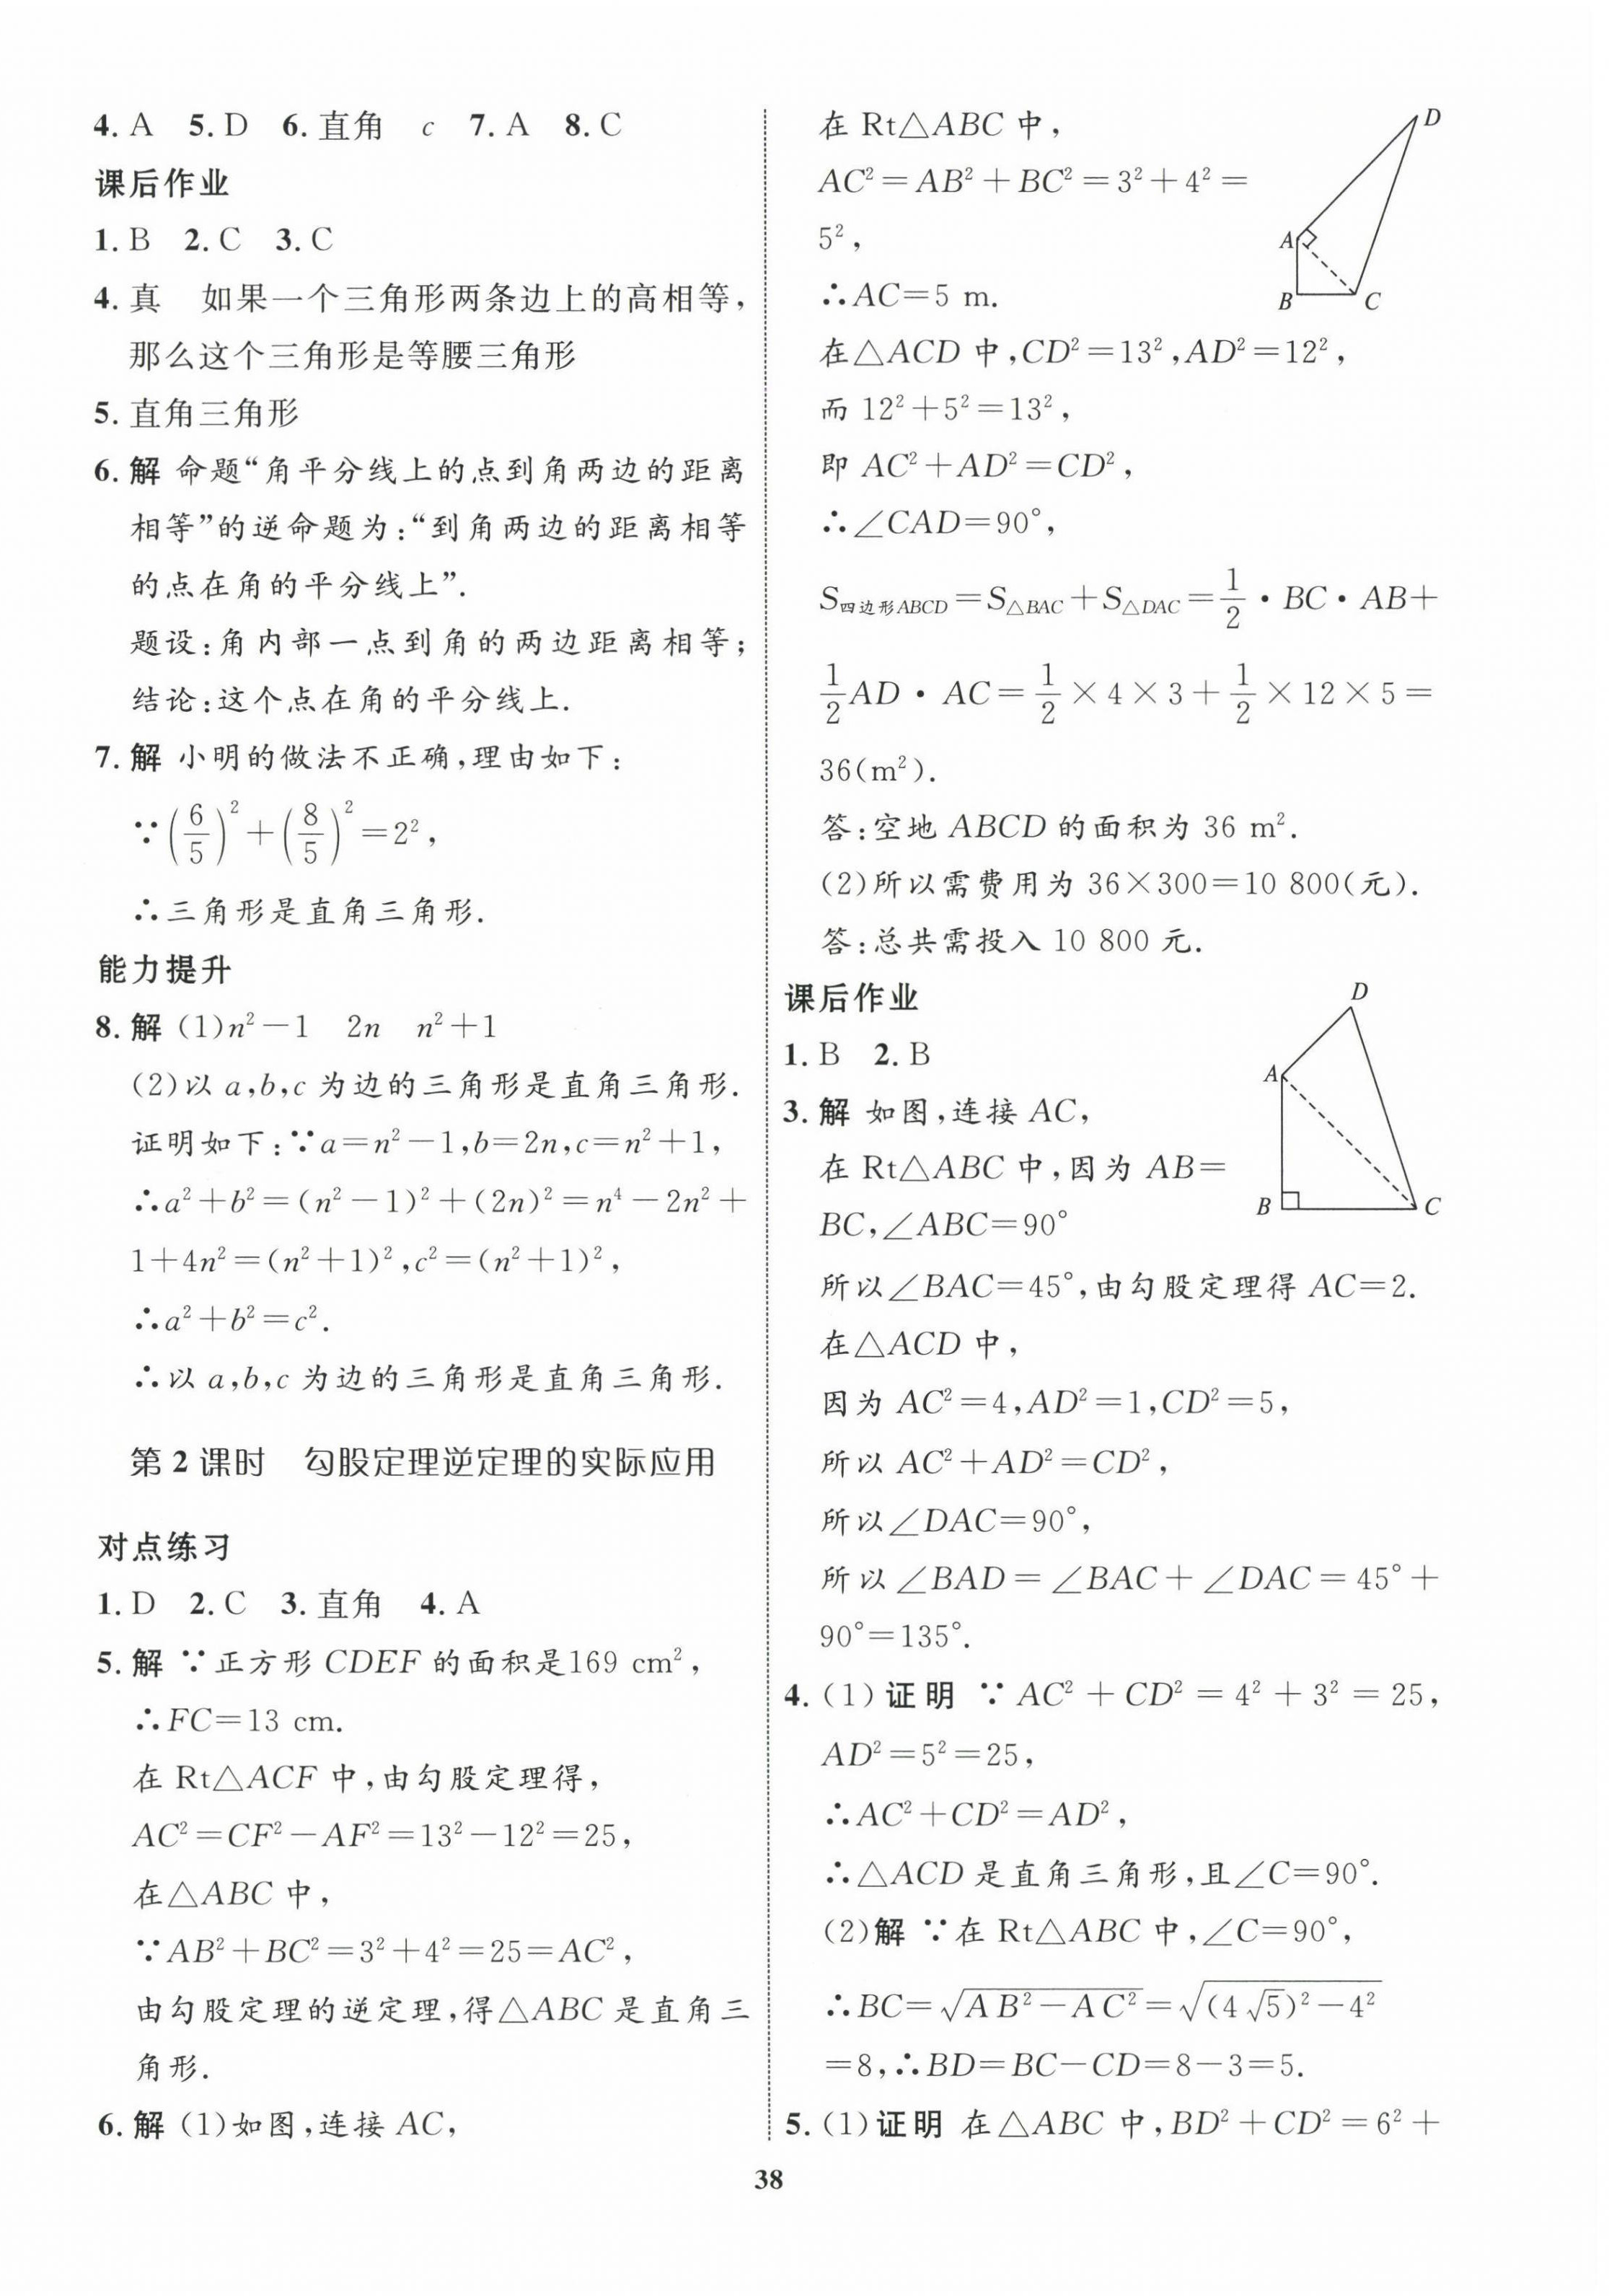 4. A　5. D　6. 直角　c　7. A　8. C
课后作业
1. B　2. C　3. C
4. 真　如果一个三角形两条边上的高相等,
那么这个三角形是等腰三角形
5. 直角三角形
6. 解 命题“角平分线上的点到角两边的距离
相等”的逆命题为:“到角两边的距离相等
的点在角的平分线上”.
题设:角内部一点到角的两边距离相等;
结论:这个点在角的平分线上.
7. 解 小明的做法不正确,理由如下:
∵(6/5)²+(8/5)²=2²,
∴三角形是直角三角形.
能力提升
8. 解 (1)n²-1　2n　n²+1
(2)以 a,b,c 为边的三角形是直角三角形.
证明如下:∵a=n²-1,b=2n,c=n²+1,
∴a²+b²=(n²-1)²+(2n)²=n⁴-2n²+
1+4n²=(n²+1)²,c²=(n²+1)²,
∴a²+b²=c².
∴以 a,b,c 为边的三角形是直角三角形.
第2课时　勾股定理逆定理的实际应用
对点练习
1. D　2. C　3. 直角　4. A
5. 解 ∵正方形 CDEF 的面积是169 cm²,
∴FC=13 cm.
在 Rt△ACF 中,由勾股定理得,
AC²=CF²-AF²=13²-12²=25,
在△ABC 中,
∵AB²+BC²=3²+4²=25=AC²,
由勾股定理的逆定理,得△ABC 是直角三
角形.
6. 解 (1)如图,连接 AC,
在 Rt△ABC 中,
AC²=AB²+BC²=3²+4²=
5²,
∴AC=5 m.
D
A
B
C
在△ACD 中,CD²=13²,AD²=12²,
而 12²+5²=13²,
即 AC²+AD²=CD²,
∴∠CAD=90°,
S四边形ABCD=S△BAC+S△DAC=1/2·BC·AB+
1/2AD·AC=1/2×4×3+1/2×12×5=
36(m²).
答:空地 ABCD 的面积为 36 m².
(2)所以需费用为 36×300=10 800(元).
答:总共需投入 10 800 元.
课后作业
1. B　2. B
3. 解 如图,连接 AC,
在 Rt△ABC 中,因为 AB=
BC,∠ABC=90°
D
A
B
C
所以∠BAC=45°,由勾股定理得 AC=2.
在△ACD 中,
因为 AC²=4,AD²=1,CD²=5,
所以 AC²+AD²=CD²,
所以∠DAC=90°,
所以∠BAD=∠BAC+∠DAC=45°+
90°=135°.
4. (1)证明 ∵AC²+CD²=4²+3²=25,
AD²=5²=25,
∴AC²+CD²=AD²,
∴△ACD 是直角三角形,且∠C=90°.
(2)解 ∵在 Rt△ABC 中,∠C=90°,
∴BC=√(AB²-AC²)=√((4√5)²-4²)
=8,∴BD=BC-CD=8-3=5.
5. (1)证明 在△ABC 中,BD²+CD²=6²+
38